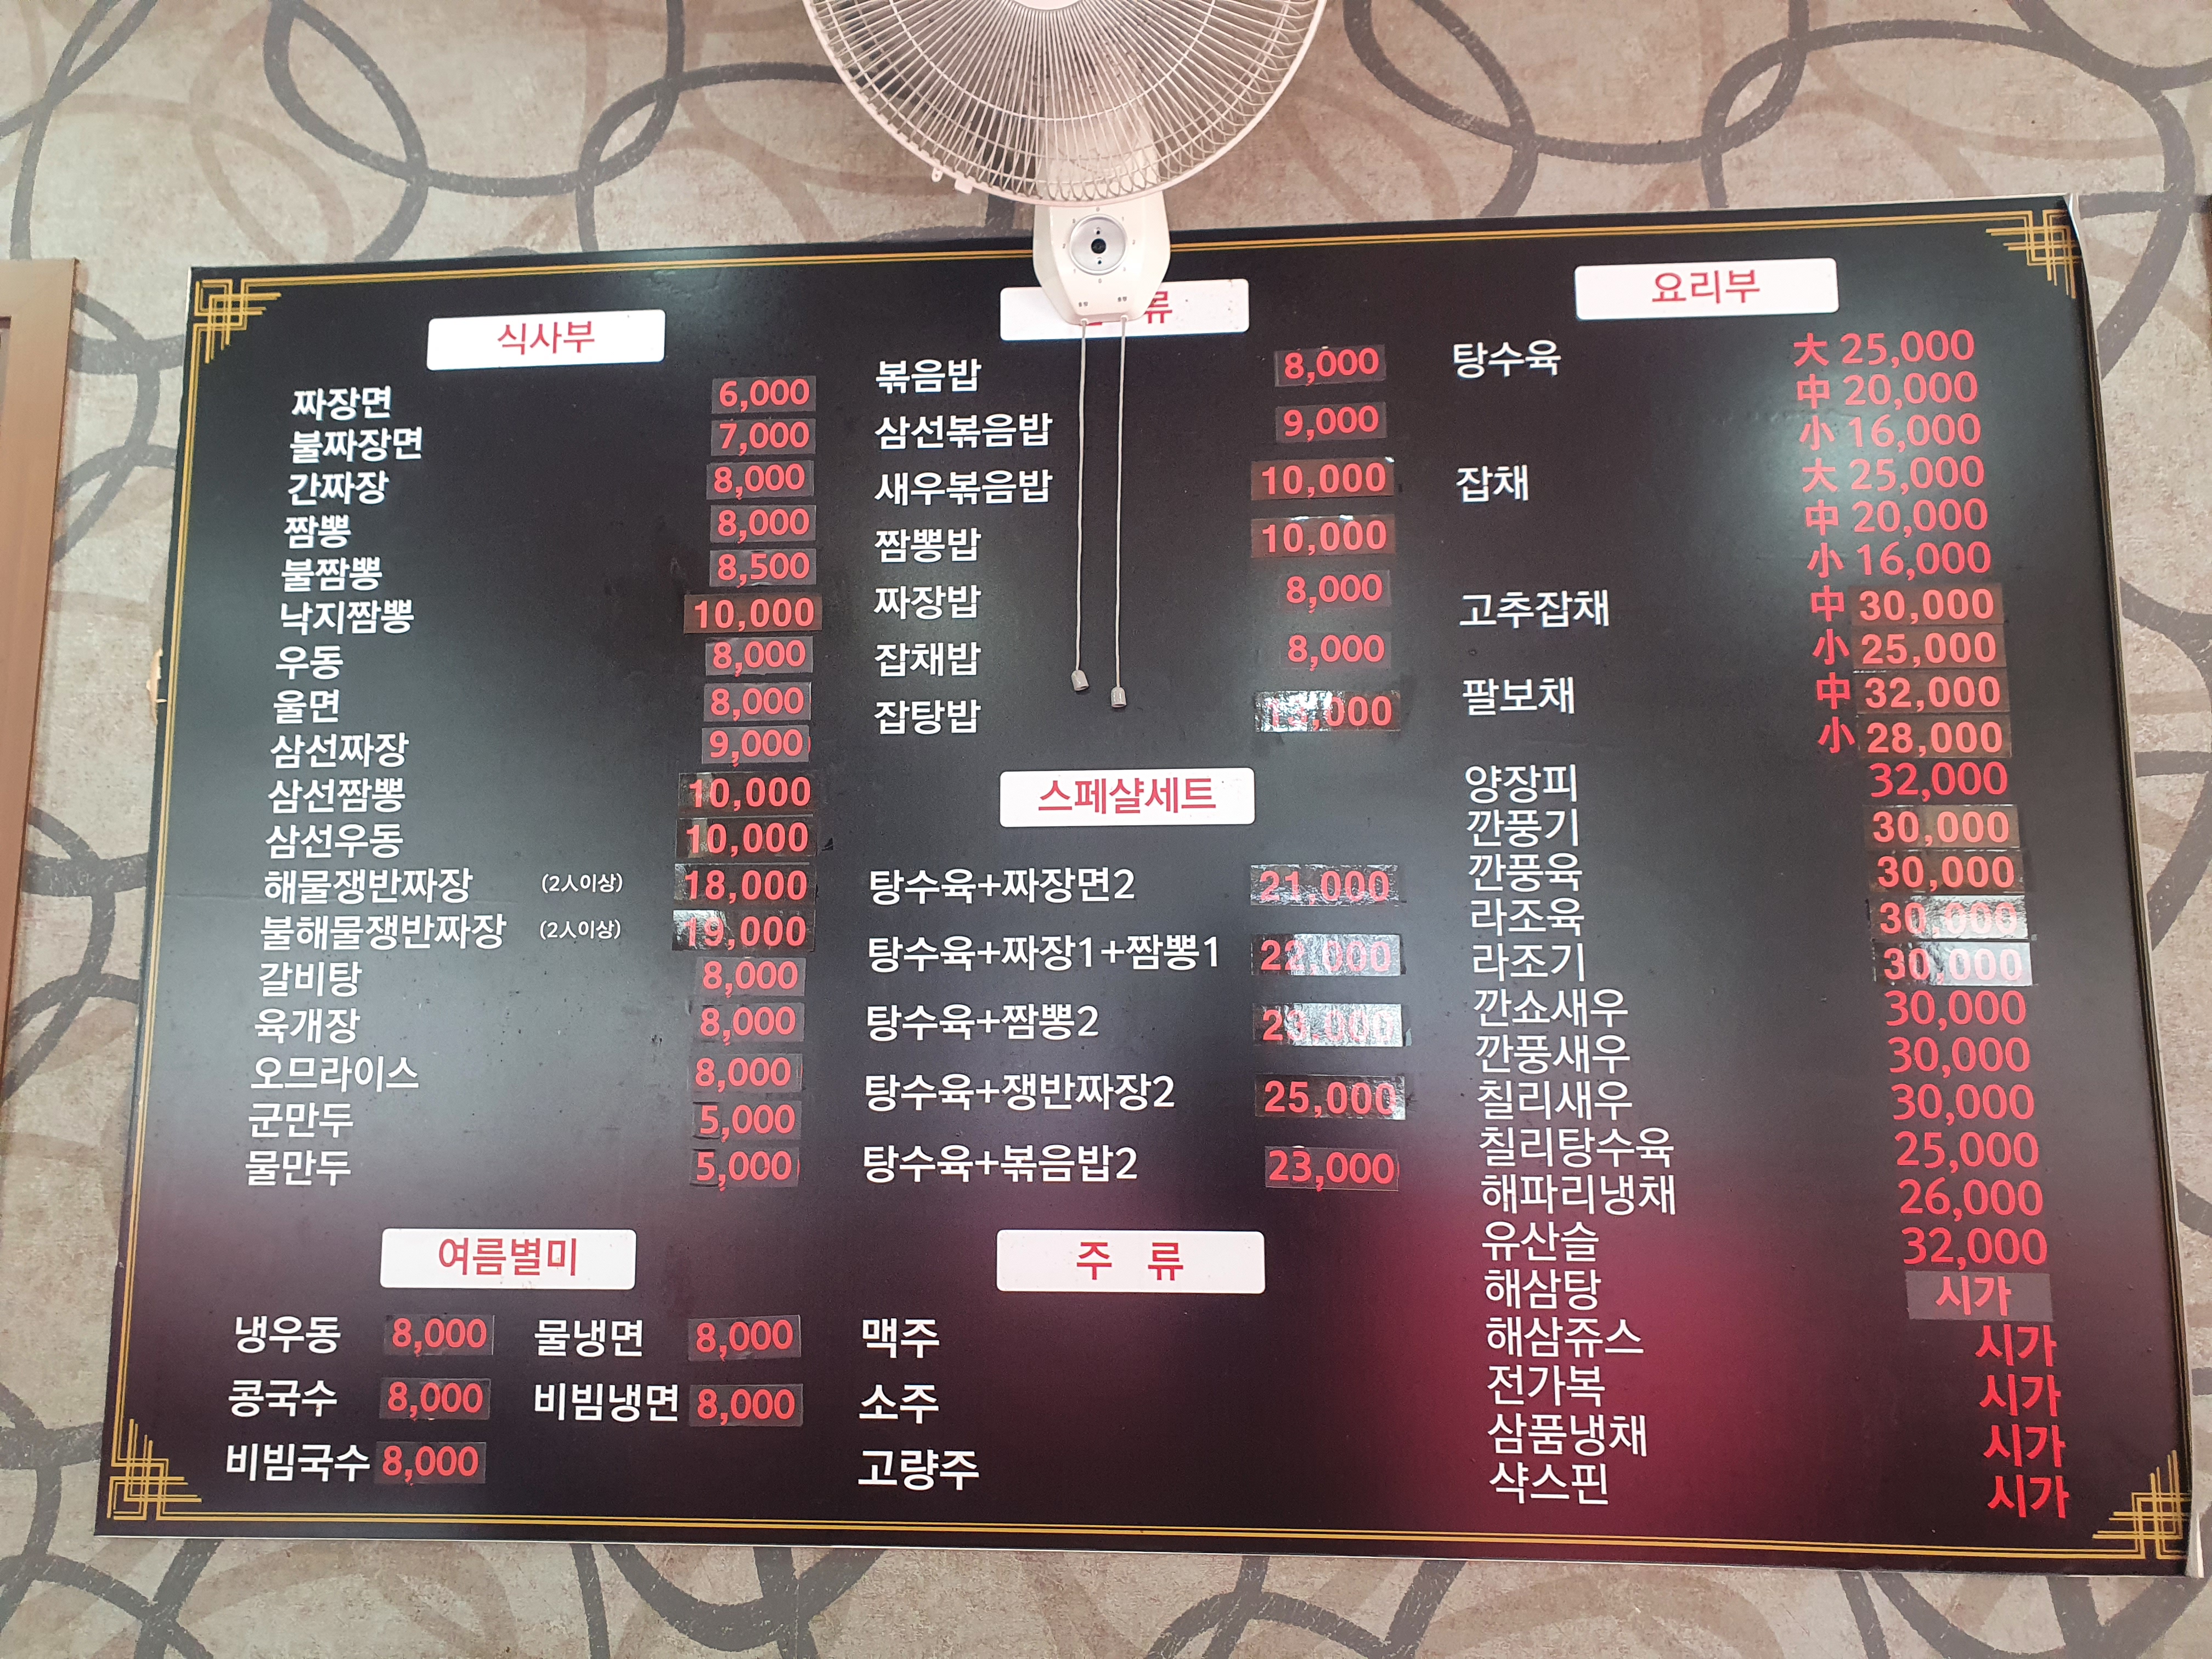 식사부
짜장면 6,000
불짜장면 7,000
간짜장 8,000
짬뽕 8,000
불짬뽕 8,500
낙지짬뽕 10,000
우동 8,000
울면 8,000
삼선짜장 9,000
삼선짬뽕 10,000
삼선우동 10,000
해물쟁반짜장 (2人이상) 18,000
불해물쟁반짜장 (2人이상) 19,000
갈비탕 8,000
육개장 8,000
오므라이스 8,000
군만두 5,000
물만두 5,000
여름별미
냉우동 8,000 물냉면 8,000
콩국수 8,000 비빔냉면 8,000
비빔국수 8,000
류
볶음밥 8,000
삼선볶음밥 9,000
새우볶음밥 10,000
짬뽕밥 10,000
짜장밥 8,000
잡채밥 8,000
잡탕밥
스페샬세트
탕수육+짜장면2 21,000
탕수육+짜장1+짬뽕1 22,000
탕수육+짬뽕2 23,000
탕수육+쟁반짜장2 25,000
탕수육+볶음밥2 23,000
주 류
맥주
소주
고량주
요리부
탕수육 大 25,000
中 20,000
小 16,000
잡채 大 25,000
中 20,000
小 16,000
고추잡채 中 30,000
小 25,000
팔보채 中 32,000
小 28,000
양장피 32,000
깐풍기 30,000
깐풍육 30,000
라조육 30,000
라조기 30,000
깐쇼새우 30,000
깐풍새우 30,000
칠리새우 30,000
칠리탕수육 25,000
해파리냉채 26,000
유산슬 32,000
해삼탕 시가
해삼쥬스 시가
전가복 시가
삼품냉채 시가
샥스핀 시가